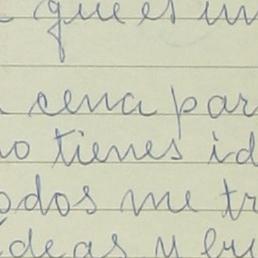 que es un
cena par
no tienes id
odos me tr
ideas y